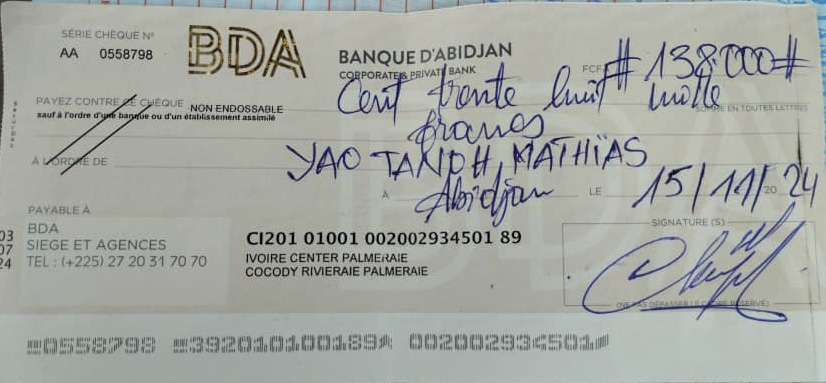 SÉRIE CHÈQUE N°
AA 0558798
BDA
BANQUE D'ABIDJAN
CORPORATE & PRIVATE BANK
FCFA # 138.000 #
PAYEZ CONTRE CE CHÈQUE NON ENDOSSABLE
sauf à l'ordre d'une banque ou d'un établissement assimilé
Cent trente huit mille
SOMME EN TOUTES LETTRES
francs
À L'ORDRE DE YAO TANOH MATHÏAS
À Abidjan LE 15/11/2024
PAYABLE À
BDA
SIEGE ET AGENCES
TEL : (+225) 27 20 31 70 70
CI201 01001 002002934501 89
IVOIRE CENTER PALMERAIE
COCODY RIVIERAIE PALMERAIE
SIGNATURE (S)
(NE PAS DÉPASSER LE CADRE RÉSERVÉ)
0558798 392010100189 002002934501